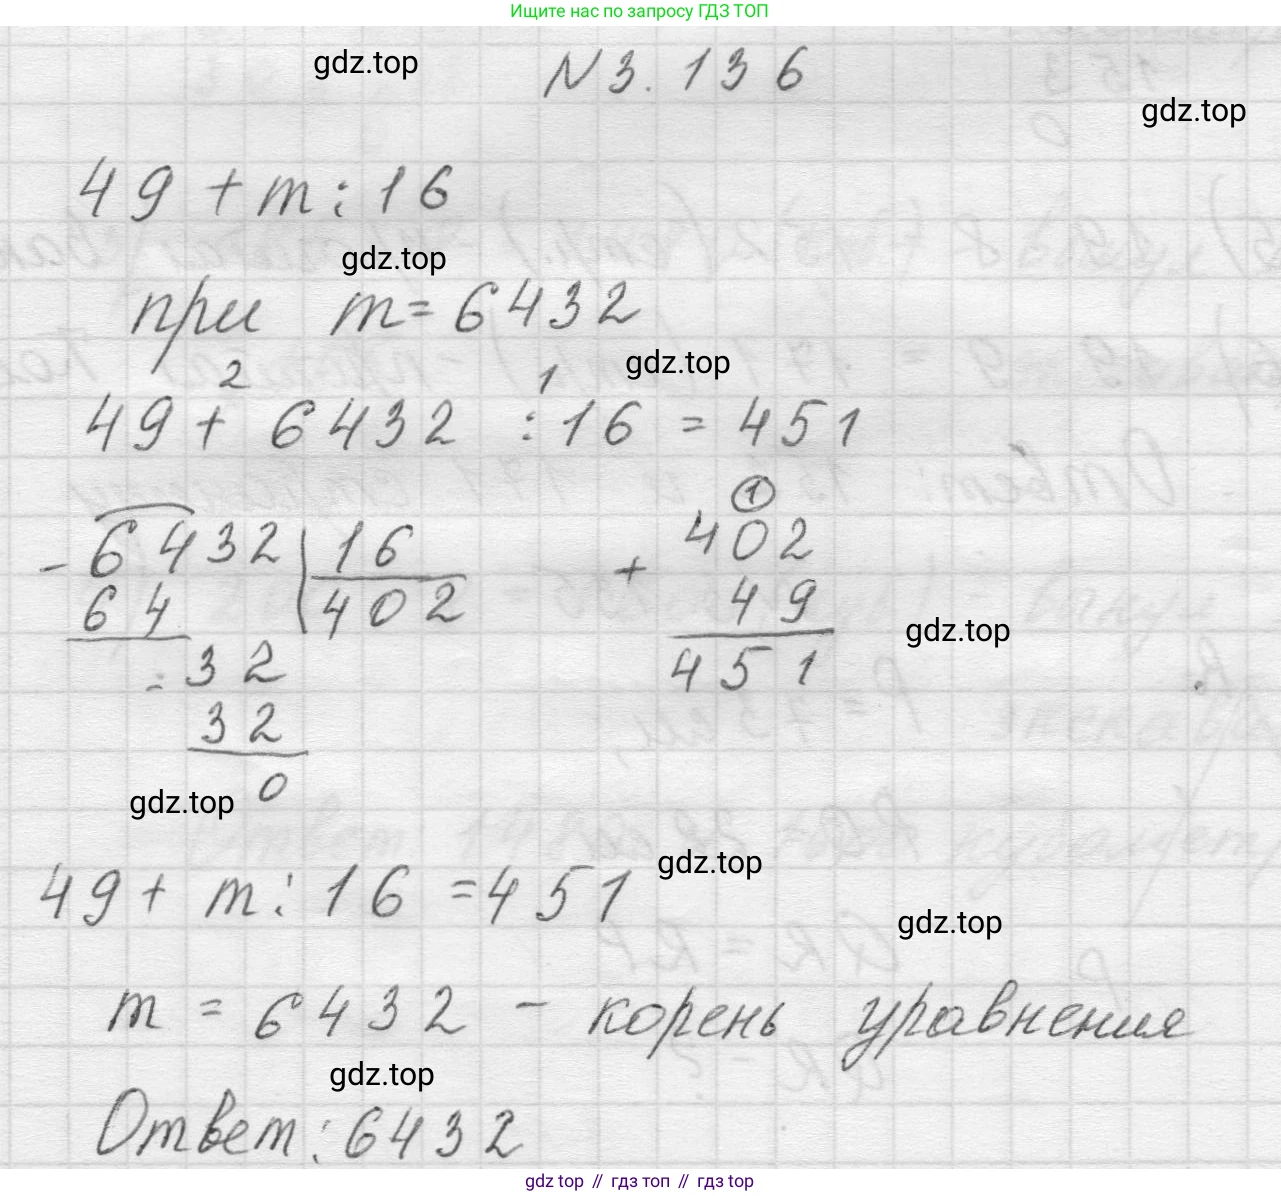 Ищите нас по запросу ГДЗ ТОП
gdz.top
N 3.136
gdz.top
49 + m : 16
gdz.top
при m = 6432
gdz.top
2 1
49 + 6432 : 16 = 451
- 6432 | 16
64 402
- 32
32
0
1
402
+
49
451
gdz.top
gdz.top
gdz.top
49 + m : 16 = 451
gdz.top
m = 6432 - корень уравнения
gdz.top
Ответ: 6432
gdz.top // гдз топ // гдз.top